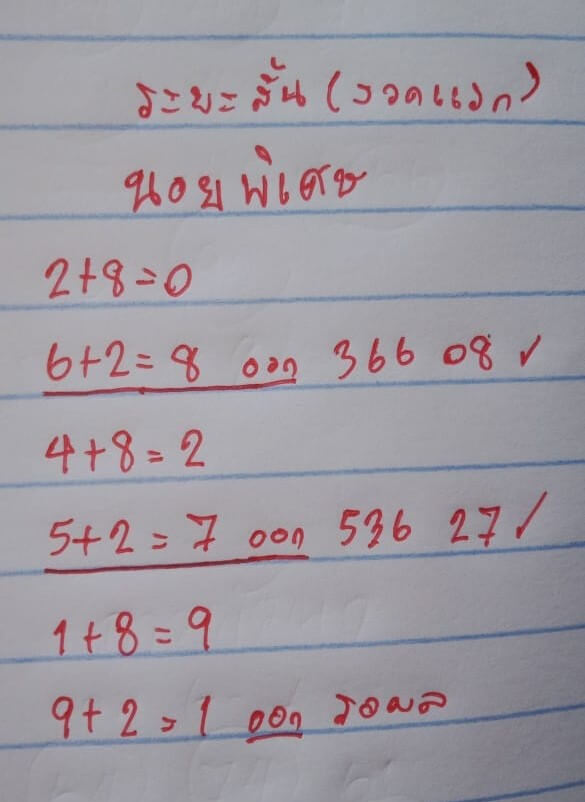 ระยะสั้น (งวดแรก)
นอยพิเศษ
2+8=0
6+2=8 ออก 366 08 ✓
4+8=2
5+2=7 ออก 536 27 ✓
1+8=9
9+2=1 ออก รอผล